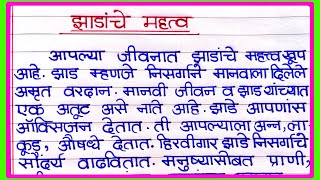 झाडांचे महत्व
आपल्या जीवनात झाडांचे महत्त्व खूप
आहे. झाड म्हणजे निसर्गाने मानवाला दिलेले
अमृत वरदान. मानवी जीवन व झाड यांच्यात
एक अतूट असे नाते आहे. झाडे आपणांस
ऑक्सिजन देतात. ती आपल्याला अन्न, ला-
कूड, औषधे देतात. हिरवीगार झाडे निसर्गाचे
सौंदर्य वाढवितात. मनुष्यासोबत प्राणी,